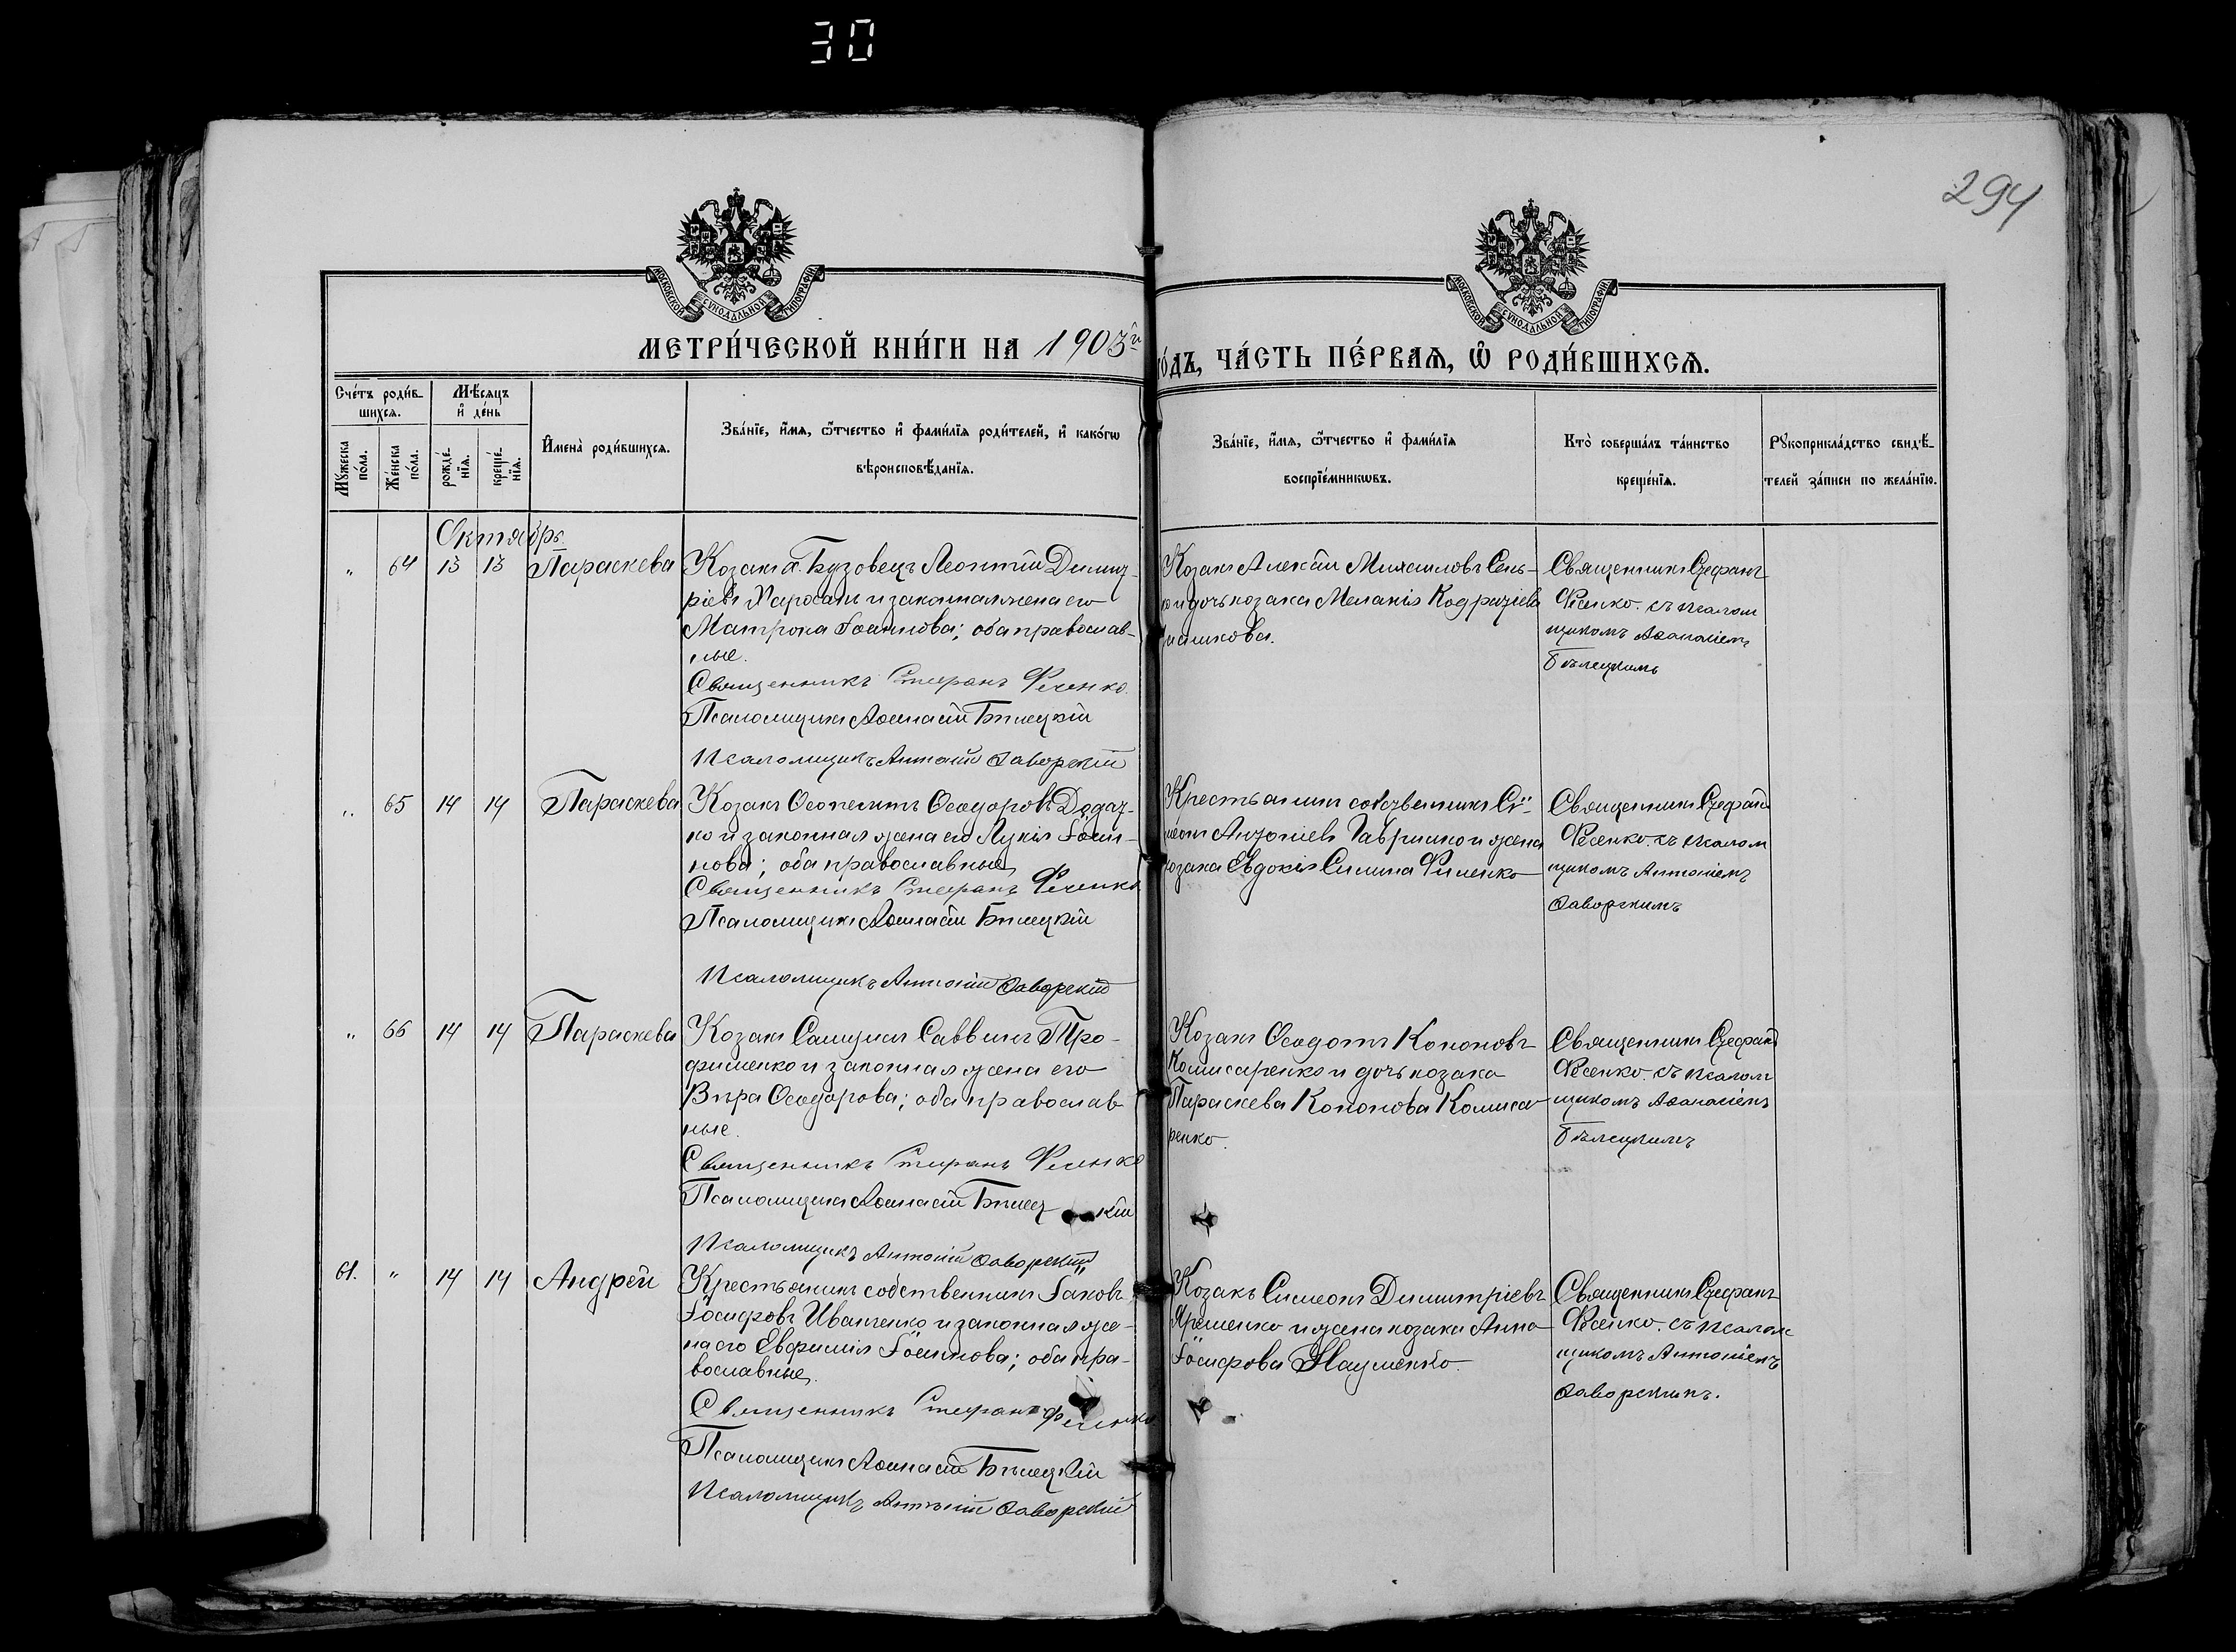 30
294
МОСКОВСКОЙ СѴНОДАЛЬНОЙ ТИПОГРАФІИ
МОСКОВСКОЙ СѴНОДАЛЬНОЙ ТИПОГРАФІИ
МЕТРИ́ЧЕСКОЙ КНИ́ГИ НА 1903й
го́дъ, ЧА́СТЬ ПЕ́РВАѦ, Ѡ РОДИ́ВШИХСѦ.
Сче́тъ роди́в-
шихсѧ.
Мѣ́сѧцъ
и҆ де́нь
Мꙋ́жеска
по́ла.
Же́нска
по́ла.
рожде́-
нїѧ.
креще́-
нїѧ.
И҆мена̀ роди́вшихсѧ.
Зва́нїе, и҆́мѧ, ѻ҆́тчество и҆ фами́лїѧ роди́телей, и҆ како́гѡ
вѣроисповѣ́данїѧ.
Зва́нїе, и҆́мѧ, ѻ҆́тчество и҆ фами́лїѧ
воспрїе́мникѡвъ.
Кто̀ соверша́лъ та́инство
креще́нїѧ.
Рꙋкоприкла́дство свидѣ́-
телей за́писи по жела́нїю.
Октябрь.
" 64 13 13 Параскева
Козакъ д. Бузовецъ Леонтій Димит-
ріевъ и законная жена его
Матрона Іоаннова; оба православ-
ные.
Священникъ Стефанъ Фесенко.
Псаломщикъ Аѳанасій Бѣлецкій
Псаломщикъ Антоній Заворскій
Козакъ Алексій Михаиловъ Сень-
ко и дочь козака Меланія
Священникъ Стефанъ
Фесенко. съ псалом
щикомъ Аѳанасіемъ
Бѣлецкимъ
" 65 14 14 Параскева
Козакъ Ѳеодоровъ Додат-
ко и законная жена его Лукія Іоан-
нова; оба православные
Священникъ Стефанъ Фесенко
Псаломщикъ Аѳанасій Бѣлецкій
Псаломщикъ Антоній Заворскій
Крестьянинъ собственникъ Сѵ-
меонъ Антоніевъ Гавришко и жена
козака Евдокія Симина Филенко
Священникъ Стефанъ
Фесенко. съ псалом
щикомъ Антоніемъ
Заворскимъ
" 66 14 14 Параскева
Козакъ Самуилъ Саввинъ Тро-
фименко и законная жена его
Вѣра Ѳеодорова; оба православ
ные.
Священникъ Стефанъ Фесенко
Псаломщикъ Аѳанасій Бѣлецкій
Псаломщикъ Антоній Заворскій
Козакъ Ѳеодотъ Кононовъ
Комисаренко и дочь козака
Параскева Кононова Комиса
ренко.
Священникъ Стефанъ
Фесенко. съ псалом
щикомъ Аѳанасіемъ
Бѣлецкимъ
61. " 14 14 Андрей
Крестьянинъ собственникъ Іаковъ
Іосифовъ Иванченко и законная же-
на его Евфимія Іоаннова; оба пра-
вославные.
Священникъ Стефанъ Фесенко
Псаломщикъ Аѳанасій Бѣлецкій
Псаломщикъ Антоній Заворскій
Козакъ Симеонъ Димитріевъ
Яременко и жена козака Анна
Іосифова Науменко.
Священникъ Стефанъ
Фесенко. съ псалом
щикомъ Антоніемъ
Заворскимъ.